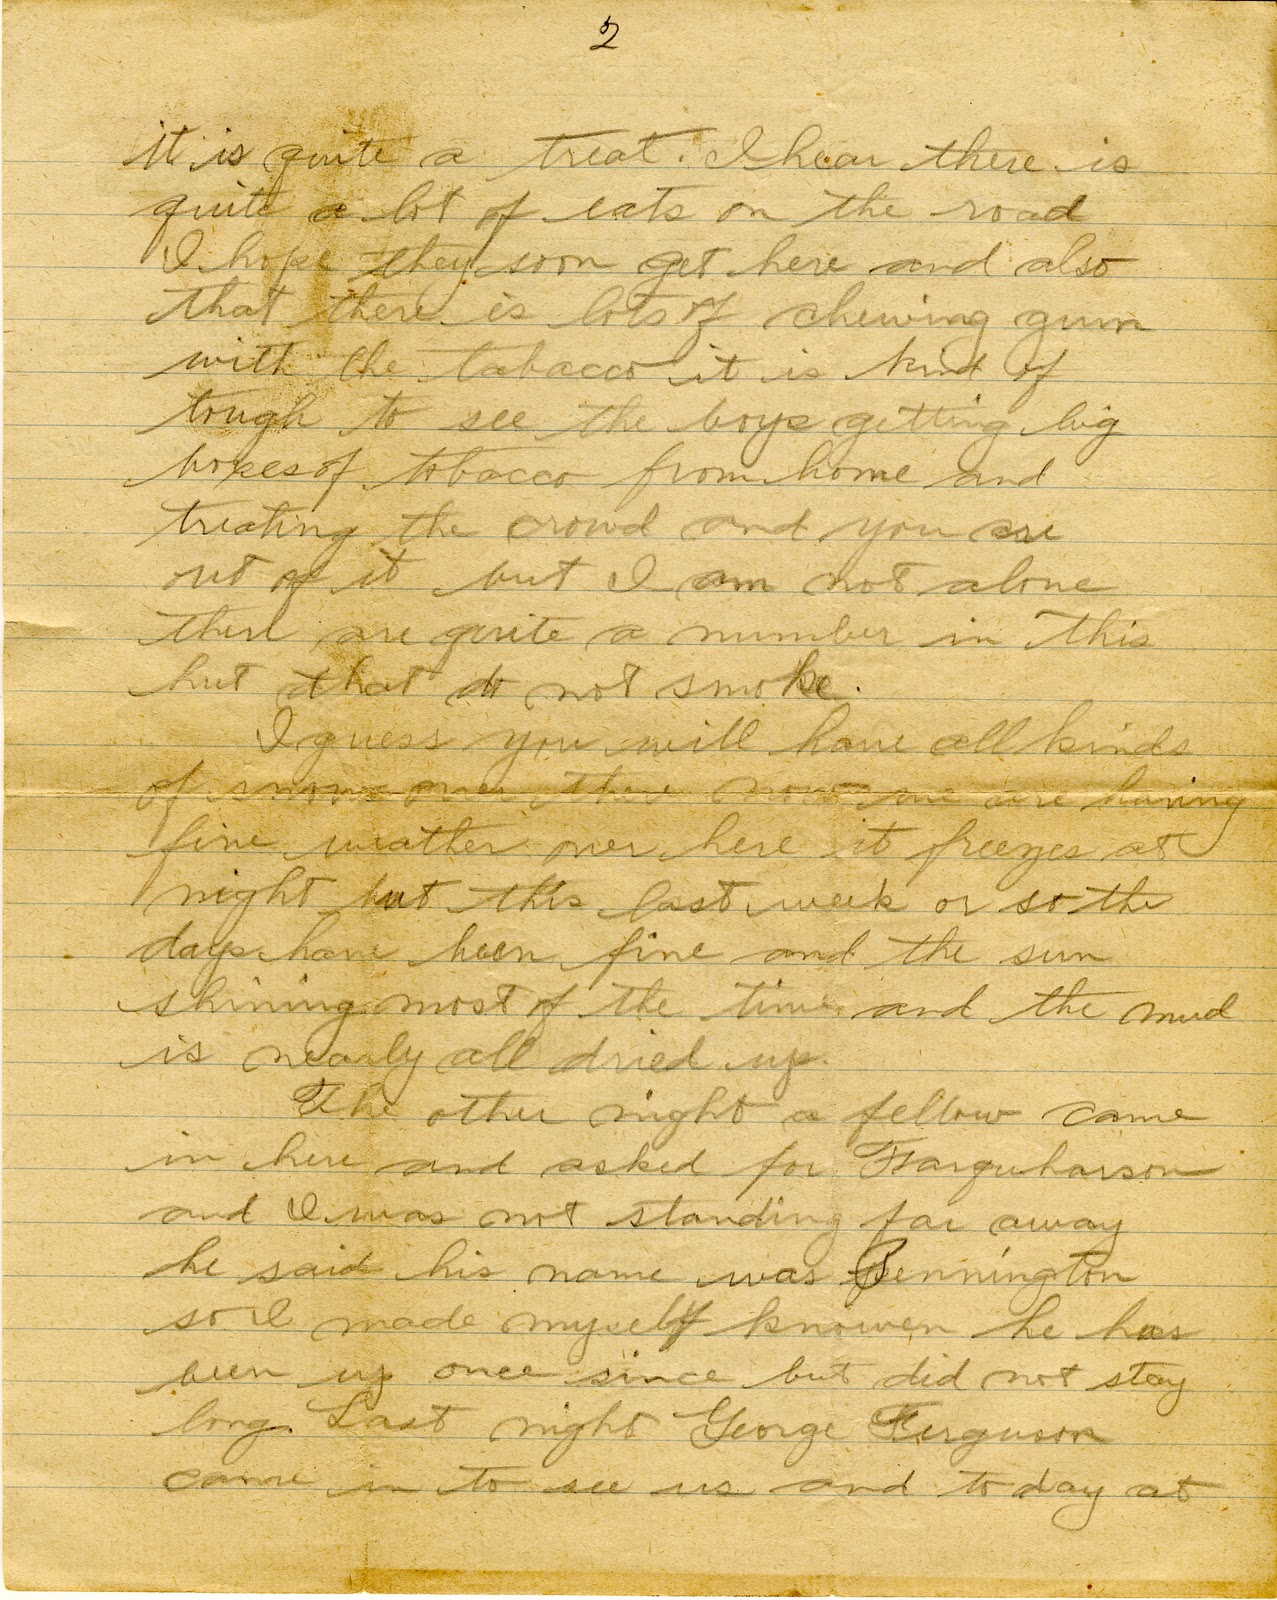 2
it is quite a treat. I hear there is
quite a lot of eats on the road
I hope they soon get here and also
that there is lots of chewing gum
with the tabacco it is kind of
tough to see the boys getting big
boxes of tobacco from home and
treating the crowd and you are
out of it but I am not alone
there are quite a number in this
hut that do not smoke.
I guess you will have all kinds
of snow over there now we are having
fine weather over here it freezes at
night but this last week or so the
days have been fine and the sun
shining most of the time and the mud
is nearly all dried up.
The other night a fellow came
in here and asked for Farquharson
and I was not standing far away
he said his name was Pennington
so I made myself knowen he has
been up once since but did not stay
long. Last night George Ferguson
came in to see us and today at